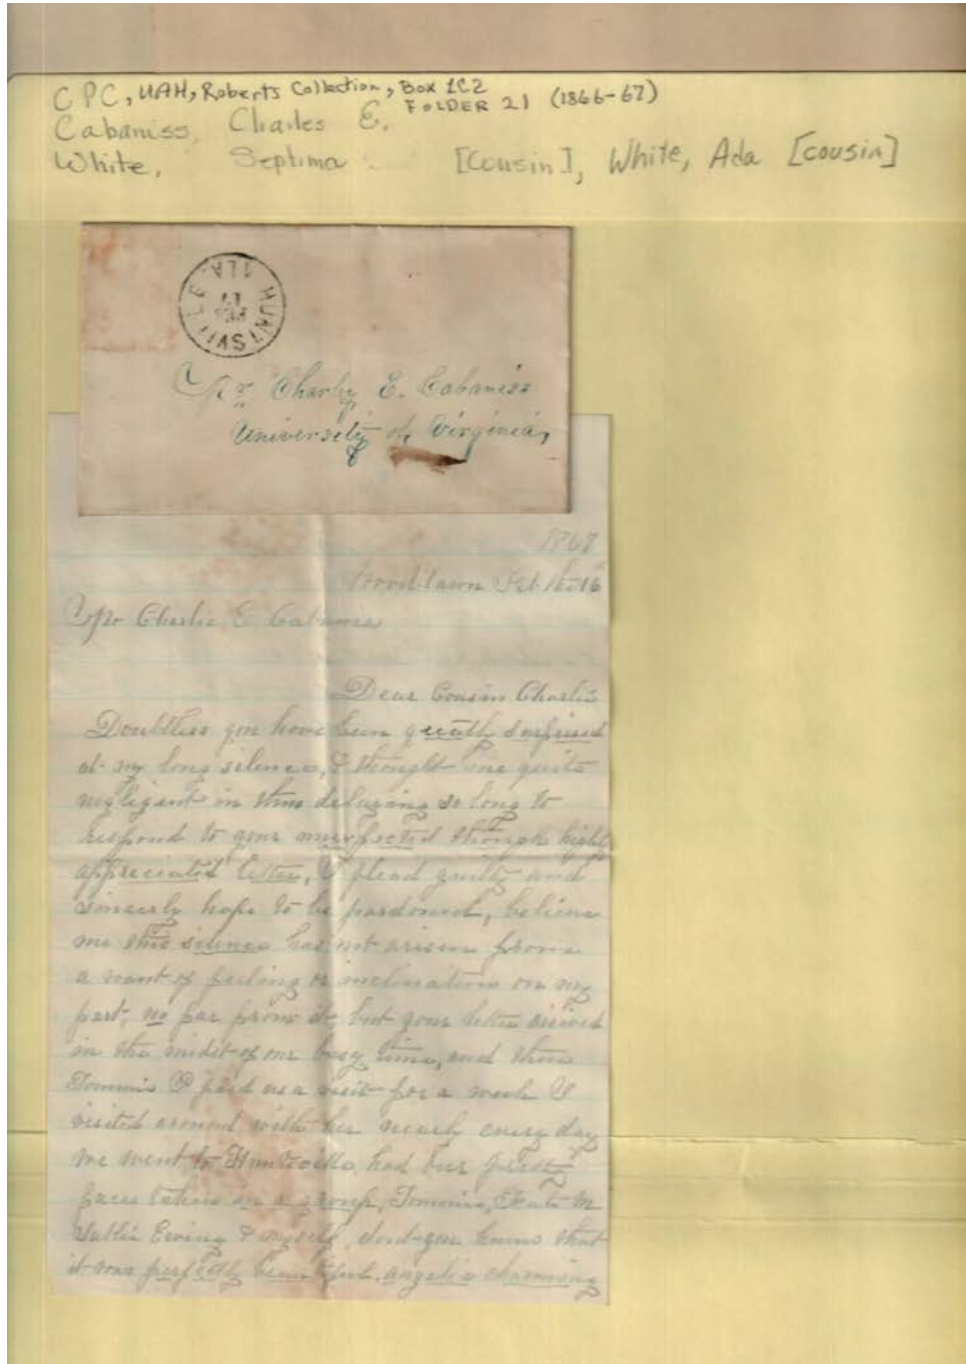 CPC, UAH, Roberts Collection, Box 2C2
FOLDER 21 (1866-67)
Cabaniss, Charles E.
White, Septima [Cousin], White, Ada [cousin]
HUNTSVILLE ALA.
Mr Charley E. Cabaniss
University of Virginia,
1867
Woodlawn Feb 16
Mr Charlie E Cabaniss
Dear Cousin Charlie
Doubtless you have been greatly surprised
at my long silence, & thought me quite
negligent in thus delaying so long to
respond to your unexpected though highly
appreciated letter, I plead guilty and
sincerly hope to be pardoned, believe
me this silence has not arisen from
a want of feeling or inclination on my
part, no far from it, but your letter arrived
in the midst of our busy time, and then
Tommie P paid us a visit for a week I
visited around with her nearly every day
we went to Huntsville had our pretty
faces taken in a group, Tommie, Kate M
Sallie Ewing & myself, dont you know that
it was perfectly beautiful, angelic charming